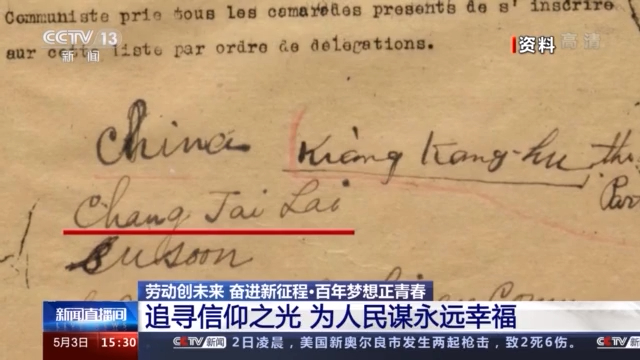 Communiste prie tous les camarades présents de s'inscrire
sur cette liste par ordre de délégations.
CCTV 13
新闻
资料 高清
China Kiang Kang-hu
Chang Tai Lai
劳动创未来 奋进新征程·百年梦想正青春
新闻直播间
追寻信仰之光 为人民谋永远幸福
5月3日 15:30
CCTV 新闻
2日凌晨，美国新奥尔良市发生两起枪击，致2死6伤。